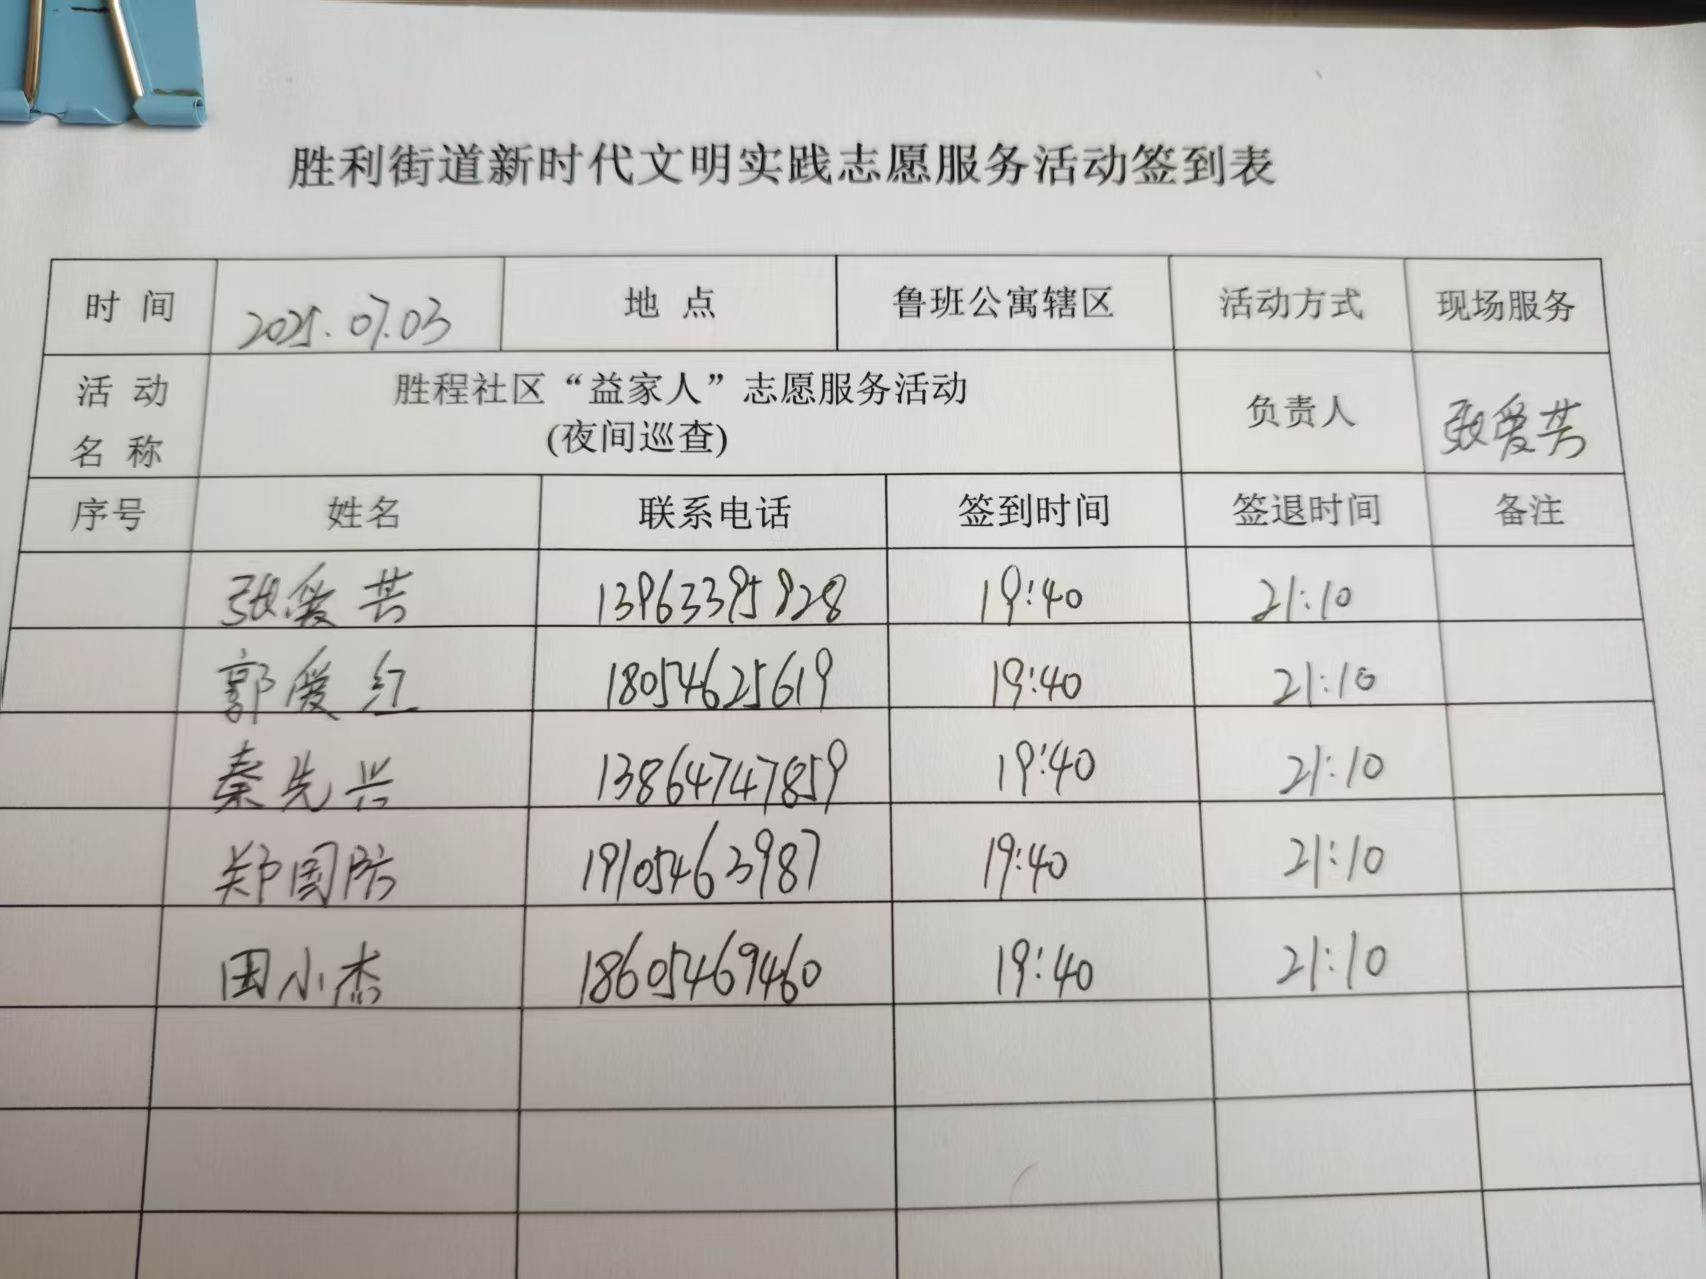 胜利街道新时代文明实践志愿服务活动签到表
时 间 2025.07.03 地 点 鲁班公寓辖区 活动方式 现场服务
活 动 名 称 胜程社区“益家人”志愿服务活动 负责人 张爱芸
(夜间巡查)
序号 姓名 联系电话 签到时间 签退时间 备注
张爱芸 13963395928 19:40 21:10
郭爱红 18054625619 19:40 21:10
秦先兴 13864747859 19:40 21:10
郑国防 19105463987 19:40 21:10
田小杰 18605469460 19:40 21:10